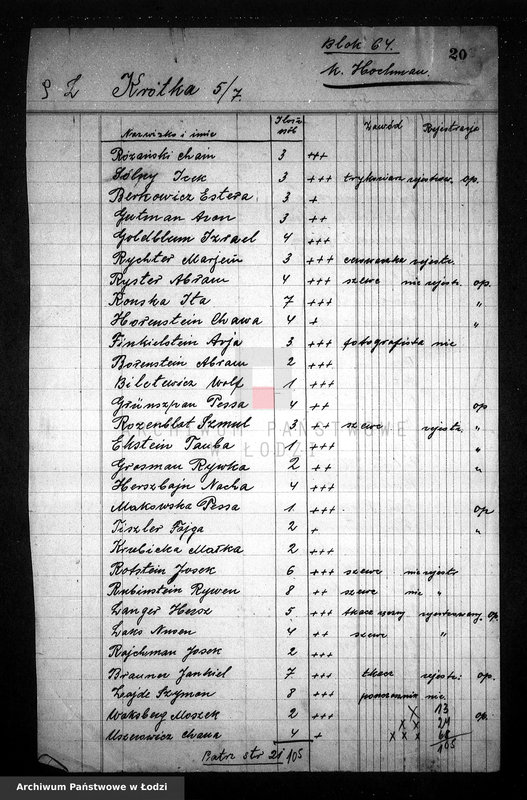 Blok 64.
20
K. Hochman
Krótka 5/7.
Nazwisko i imie Ilość osób Zawód Rejestracja
Różański Chaim 3 +++
Icek 3 +++ rejestrow. op.
Berkowicz Estera 3 +
Gutman Aron 3 ++
Goldblum Izrael 4 +++
Rychter Marjem 3 +++ rejestr.
Ryster Abram 4 +++ szewc nie rejestr. op.
Konska Ita 7 +++ "
Horenstein Chawa 4 + "
Finkielstein Arja 3 +++ fotografista nie
Borenstein Abram 2 +++
Biletowicz Wolf 1 +++
Grünszpan Pessa 4 ++ op
Rozenblat Szmul 3 ++ szewc rejestr. "
Ekstein Tauba 1 +++ "
Grosman Rywka 2 ++ "
Herszbajn Nacha 4 +++
Makowska Pessa 1 +++ op
Tiszler Fajga 2 + "
Krubicka Małka 2 +++
Rotstein Josek 6 +++ szewc nie rejestr
Rubinstein Rywen 8 ++ szewc nie "
Langer Hersz 5 +++ tkacz op.
Laks Nusen 4 ++ szewc "
Rajchman Josek 2 +++
Brauner Jankiel 7 +++ tkacz rejestr. op.
Lajde Szyman 8 +++ nie
Waksberg Moszek 2 +++ x 13 op.
x x 24
Uszerowicz Chana 4 + x x x 68
105
str 21 105
ARCHIWUM PAŃSTWOWE
W ŁODZI
Archiwum Państwowe w Łodzi